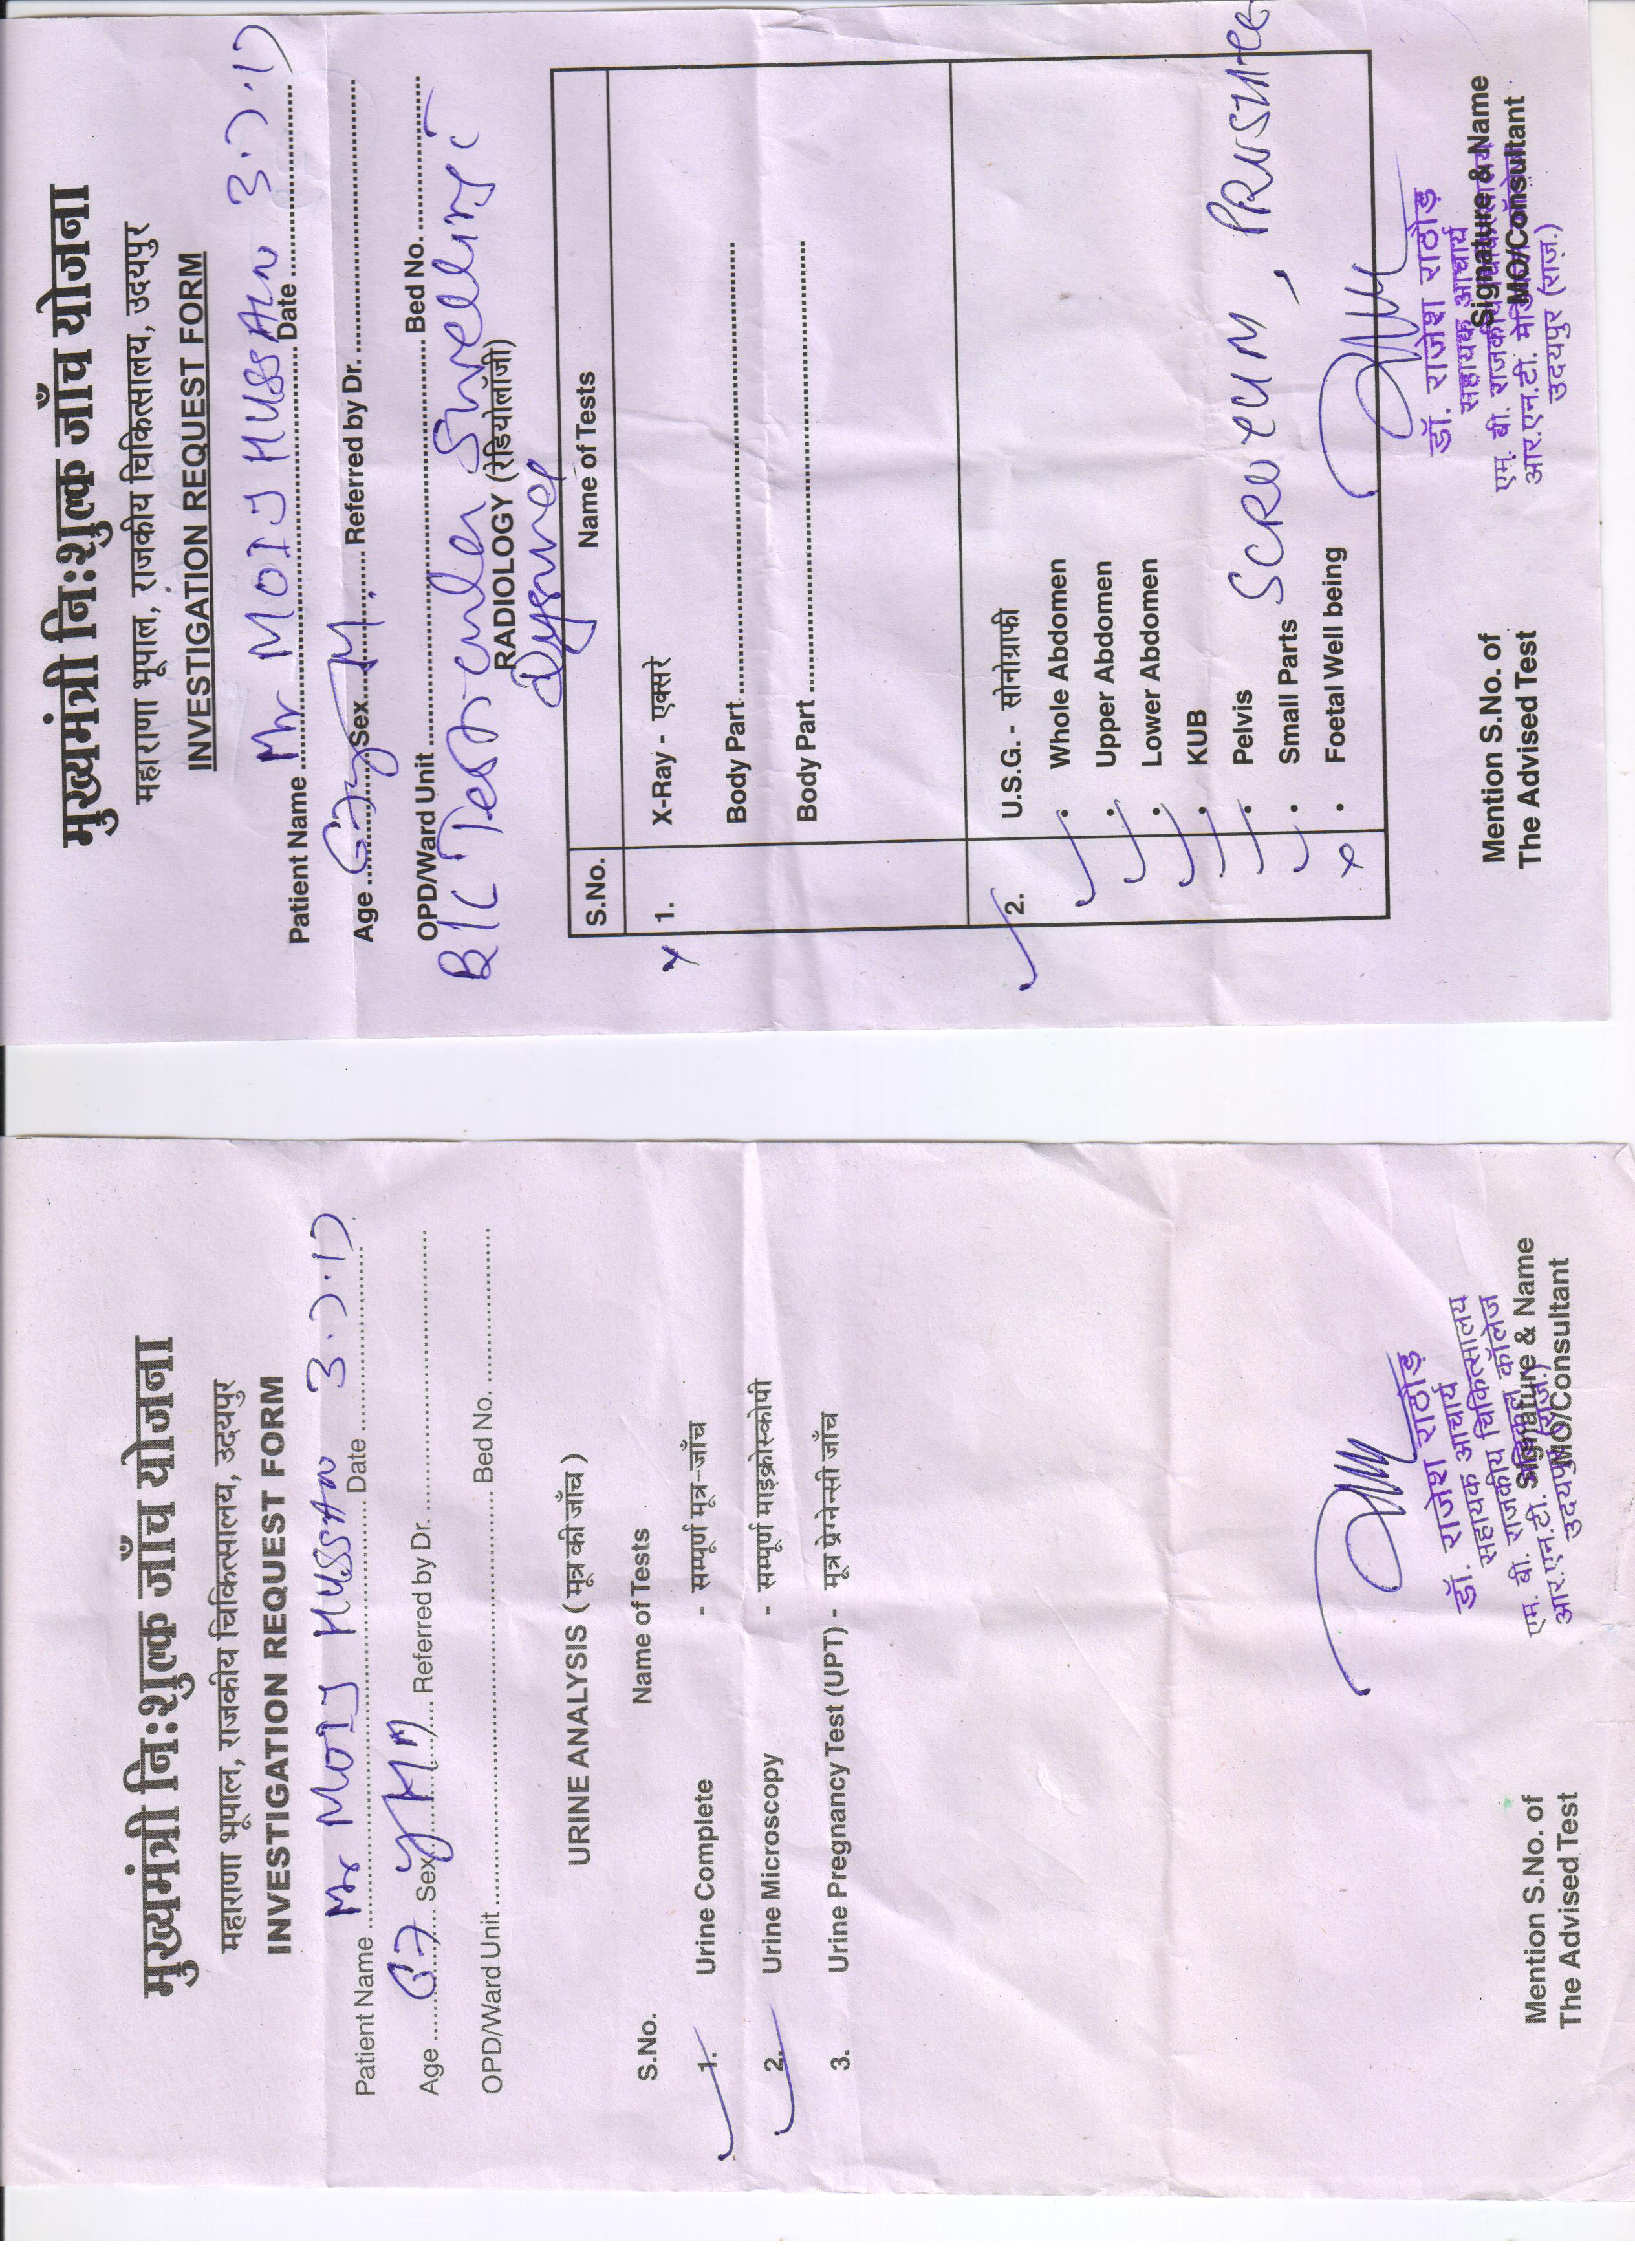 मुख्यमंत्री नि:शुल्क जाँच योजना
महाराणा भूपाल, राजकीय चिकित्सालय, उदयपुर
INVESTIGATION REQUEST FORM
Patient Name Mr MOIJ HUSSAIN Date 3.7.17
Age 67 Sex M Referred by Dr.
OPD/Ward Unit Bed No.
URINE ANALYSIS ( मूत्र की जाँच )
S.No. Name of Tests
1. Urine Complete - सम्पूर्ण मूत्र-जाँच
2. Urine Microscopy - सम्पूर्ण माइक्रोस्कोपी
3. Urine Pregnancy Test (UPT) - मूत्र प्रेग्नेन्सी जाँच
डॉ. राजेश राठौड़
सहायक आचार्य
एम. बी. राजकीय चिकित्सालय
आर.एन.टी. मेडिकल कॉलेज
उदयपुर (राज.)
Mention S.No. of Signature & Name
The Advised Test MO/Consultant
मुख्यमंत्री नि:शुल्क जाँच योजना
महाराणा भूपाल, राजकीय चिकित्सालय, उदयपुर
INVESTIGATION REQUEST FORM
Patient Name Mr MOIJ HUSSAIN Date 3.7.17
Age 67y Sex M. Referred by Dr.
OPD/Ward Unit Bed No.
B/L Testicular Swelling
RADIOLOGY (रेडियोलॉजी)
S.No. Name of Tests
x 1. X-Ray - एक्सरे
Body Part
Body Part
2. U.S.G. - सोनोग्राफी
• Whole Abdomen
• Upper Abdomen
• Lower Abdomen
• KUB
• Pelvis
• Small Parts SCROTUM, PROSTATE
x • Foetal Well being
डॉ. राजेश राठौड़
सहायक आचार्य
एम. बी. राजकीय चिकित्सालय
आर.एन.टी. मेडिकल कॉलेज
उदयपुर (राज.)
Mention S.No. of Signature & Name
The Advised Test MO/Consultant